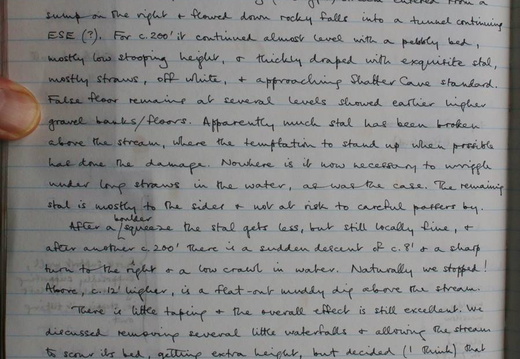 sump on the right & flowed down rocky falls into a tunnel continuing
ESE (?). For c.200' it continued almost level with a pebbly bed,
mostly low stooping height, & thickly draped with exquisite stal,
mostly straws, off white, & approaching Shatter Cave standard.
False floor remains at several levels showed earlier higher
gravel banks/floors. Apparently much stal has been broken
above the stream, where the temptation to stand up when possible
has done the damage. Nowhere is it now necessary to wriggle
under long straws in the water, as was the case. The remaining
stal is mostly to the sides & not at risk to careful passers by.
After a boulder squeeze the stal gets less, but still locally fine, &
after another c.200' there is a sudden descent of c.8' & a sharp
turn to the right & a low crawl in water. Naturally we stopped!
Above, c.12' higher, is a flat-out muddy dig above the stream.
There is little taping & the overall effect is still excellent. We
discussed removing several little waterfalls & allowing the stream
to scour its bed, getting extra height, but decided (I think) that